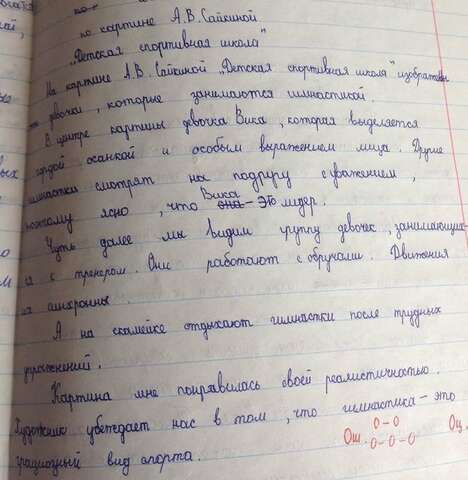 по картине А.В.Сайкиной
„Детская спортивная школа"
На картине А.В.Сайкиной „Детская спортивная школа" изображены
девочки, которые занимаются гимнастикой.
В центре картины девочка Вика, которая выделяется
гордой осанкой и особым выражением лица. Другие
гимнастки смотрят на подругу с уважением,
поэтому ясно, что Вика - это лидер.
Чуть далее мы видим группу девочек, занимающих-
ся с тренером. Они работают с обручами. Движения
их синхронны.
А на скамейке отдыхают гимнастки после трудных
упражнений.
Картина мне понравилась своей реалистичностью.
Художник убеждает нас в том, что гимнастика - это
грациозный вид спорта.
Ош. 0-0
0-0-0
Оц.